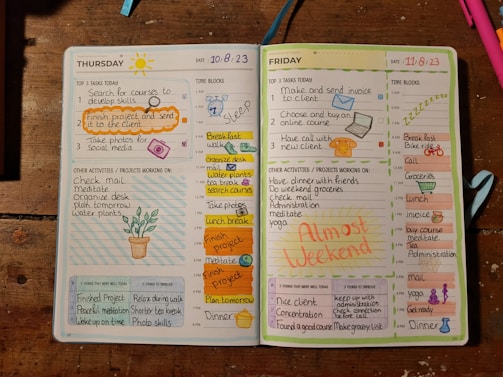 THURSDAY
DATE: 10.8.23
TOP 3 TASKS TODAY
1 Search for courses to
develop skills
2 Finish project and send
it to the client
3 Take photos for
social media
OTHER ACTIVITIES / PROJECTS WORKING ON:
Check mail
Meditate
Organize desk
Plan tomorrow
Water plants
3 THINGS THAT WENT WELL TODAY
Finished Project
Peaceful meditation
Woke up on time
3 THINGS TO IMPROVE
Relax during walk
Shorter tea break
Photo skills
TIME BLOCKS
Sleep
Breakfast
walk
Organize desk
mail
Water plants
tea break
search courses
Take photos
Lunch break
Finish
project
Meditate
Finish
project
Plan tomorrow
Dinner
FRIDAY
DATE: 11.8.23
TOP 3 TASKS TODAY
1 Make and send invoice
to client
2 Choose and buy an
online course
3 Have call with
new client
OTHER ACTIVITIES / PROJECTS WORKING ON:
Have dinner with friends
Do weekend groceries
check mail
Administration
meditate
yoga
Almost
Weekend
3 THINGS THAT WENT WELL TODAY
Nice client
Concentration
Found a good course
3 THINGS TO IMPROVE
keep up with
administration
Check connection
before call
Make grocery list
TIME BLOCKS
zzzzzzz
Breakfast
Bike ride
Call
Groceries
Lunch
invoice
buy course
meditate
Tea
Administration
mail
yoga
Get ready
Dinner